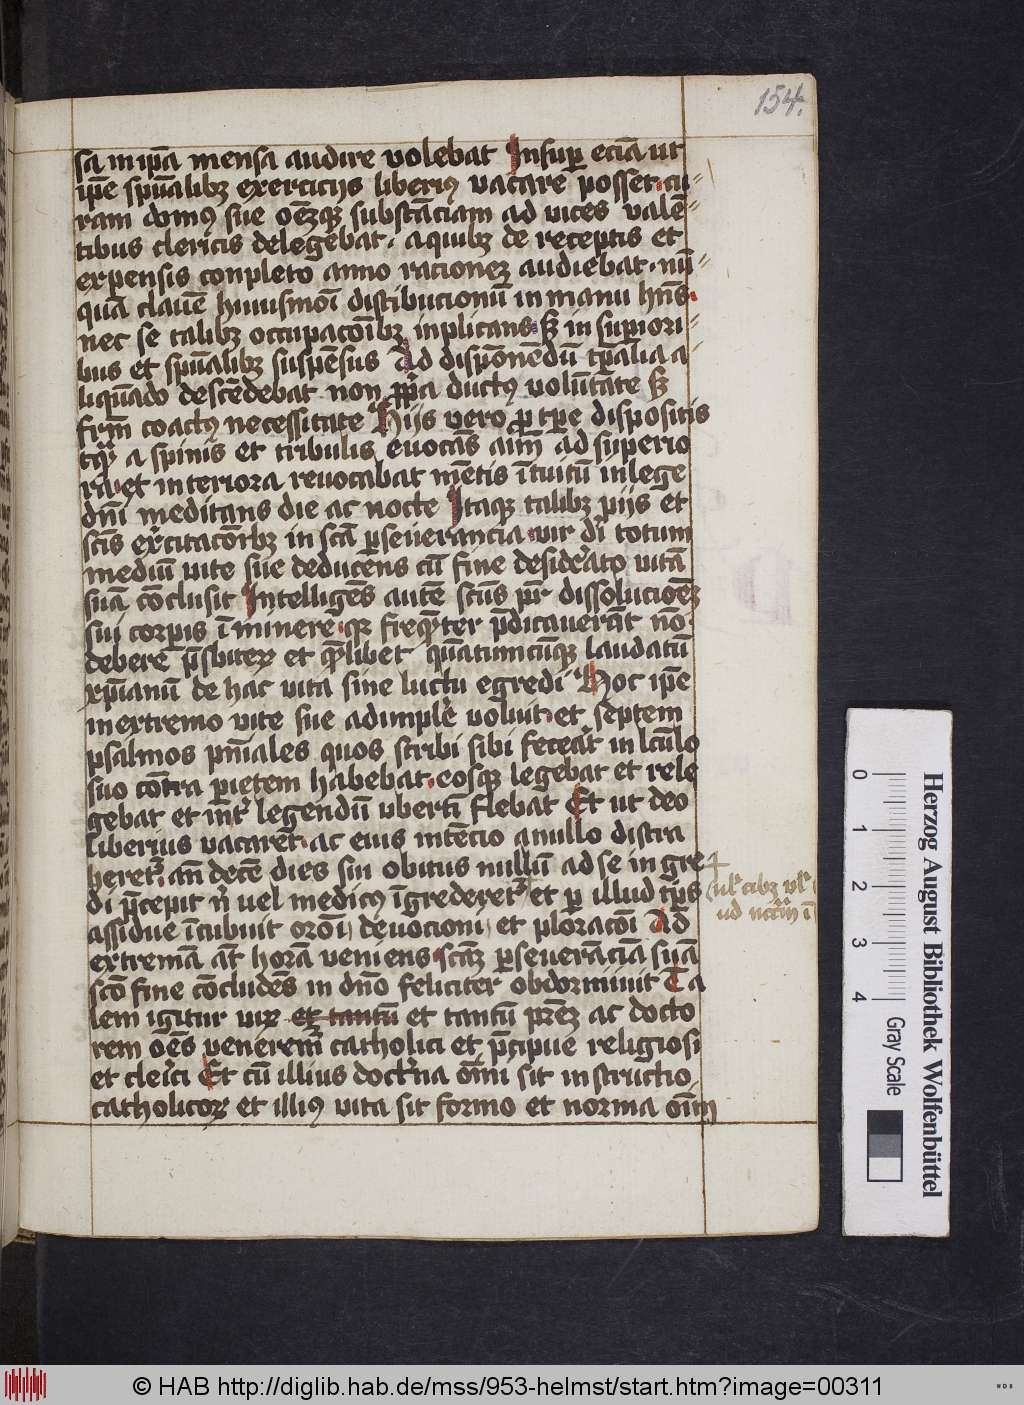 154.
sa in ip̄a mensa audire volebat Insuꝑ eciā ut
ip̄e spūalibꝫ exercicijs liberiꝰ vacare posset cu⸗
ram domꝰ sue oēꝫqꝫ substāciam ad vices valē⸗
tibus clericis delegebat. a quibꝫ de receptis et
expensis conpleto anno racionēꝫ audiebat. nū⸗
quā clauē huiusmōi distibucionū in manu hn̄s.
nec se talibꝫ occupacōibꝫ inplicans sꝫ in supiori⸗
bus et spūalibꝫ suspēsus Ad dispōnēdū tꝑalia a⸗
liquādo descēdebat non ꝓpͥa ductꝰ volūtate sꝫ
frm̄ coactꝰ necessitate Hijs vero ꝓ tꝑe dispositis
tqͣꝫ a spinis et tribulis euocās aīm̄ ad superio
ra et interiora reuocabat mētis ītuitū in lege
dn̄i meditans die ac nocte Itaqꝫ talibꝫ pijs et
sc̄is exͥcitacōibꝫ in scā ꝑseuerancia vir dī totum
mediū vite sue deducens cū fine desideͣto vitā
suā cōclusit Intelligēs autē sc̄us pr̄ dissolucionēꝫ
sui corꝑis īminere qꝛ freqͣter p̄dicauerāt nō
debere p̄sbiterꝫ et qͣlibet quātumcūqꝫ laudatū
xp̄ianū de hac vita sine luctu egredi Hoc ip̄e
in extremo vite sue adimplē voluit et septem
psalmos pn̄iales quos scribi sibi feceāt in lc̄ulo
suo cōtra ꝑietem habebat eosqꝫ legebat et rele
gebat et int̄ legendū vbertī flebat Et ut deo
liberius vacaret. ac eius intēcio a nullo distra
heretᷣ. an̄ decē dies sui obitus nullū ad se in gre
di p̄cepit nͥ vel medicꝰ īgrederetᷣ et ꝑ illud tp̄s
assidue īcubuit orōi deuocioni et ploracōi Ad
extremā āt horā veniens scāꝫ ꝑseuerāciā suā
scō fine cōcludēs in dn̄o feliciter obdormiuit Ta
lem igitur virꝫ et tantū et tantū pr̄eꝫ ac docto
rem oēs venerem̄ catholici et p̄cipue religiosi
et cleīci Et cū illius doctͥna oīni sit instructio
catholicorꝫ et illiꝰ vita sit formo et norma oīm
Herzog August Bibliothek Wolfenbüttel
0 1 2 3 4 Gray Scale
© HAB http://diglib.hab.de/mss/953-helmst/start.htm?image=00311